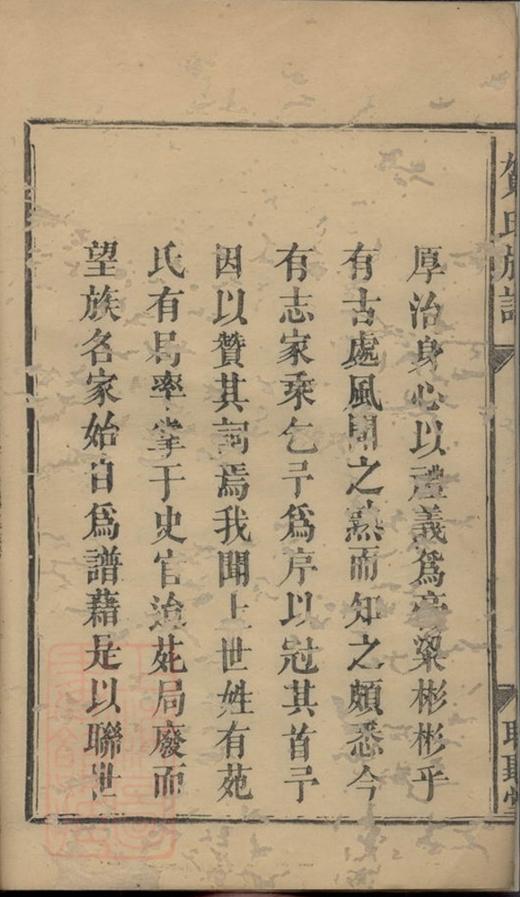 賀氏族譜
厚治身心以禮義爲膏粱彬彬乎
有古處風聞之熟而知之頗悉今
有志家乘乞予爲序以冠其首予
因以贊其詞焉我聞上世姓有苑
氏有局率掌于史官迨苑局廢而
望族名家始自爲譜藉是以聯世